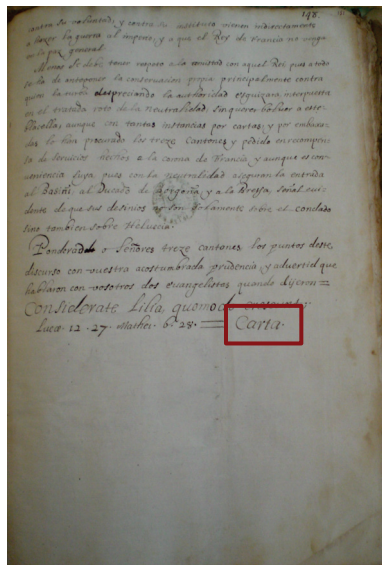 148.
contra su voluntad, y contra su instituto vienen indirectamente
a hazer la guerra al imperio, y a que el Rey de Francia no venga
en la paz general.
Menos se debe tener respeto a la amistad con aquel Rey pues a todo
se ha de anteponer la conservacion propia principalmente contra
quien la misma despreciando la authoridad esguizara interpuesta
en el tratado roto de la Neutralidad, sin querer bolber a este-
blecella, aunque con tantas instancias por cartas, y por embaxa-
das lo han procurado los treze Cantones y pedido en recompen-
sa de servicios hechos a la corona de Francia, y aunque es con-
veniencia suya pues con la neutralidad aseguran la entrada
al Basini, al Ducado de Borgoña, y a la Bressa, señal evi-
dente de que sus desinios no son solamente sobre el condado
sino tambien sobre Helvecia.
Ponderad o Señores treze cantones los puntos deste
discurso con vuestra acostumbrada prudencia y advertid que
hablaron con vosotros dos evangelistas quando dijeron =
Considerate Lilia, quomodo crescunt.
Lucæ. 12. 27. Mathei. 6. 28. = Carta.